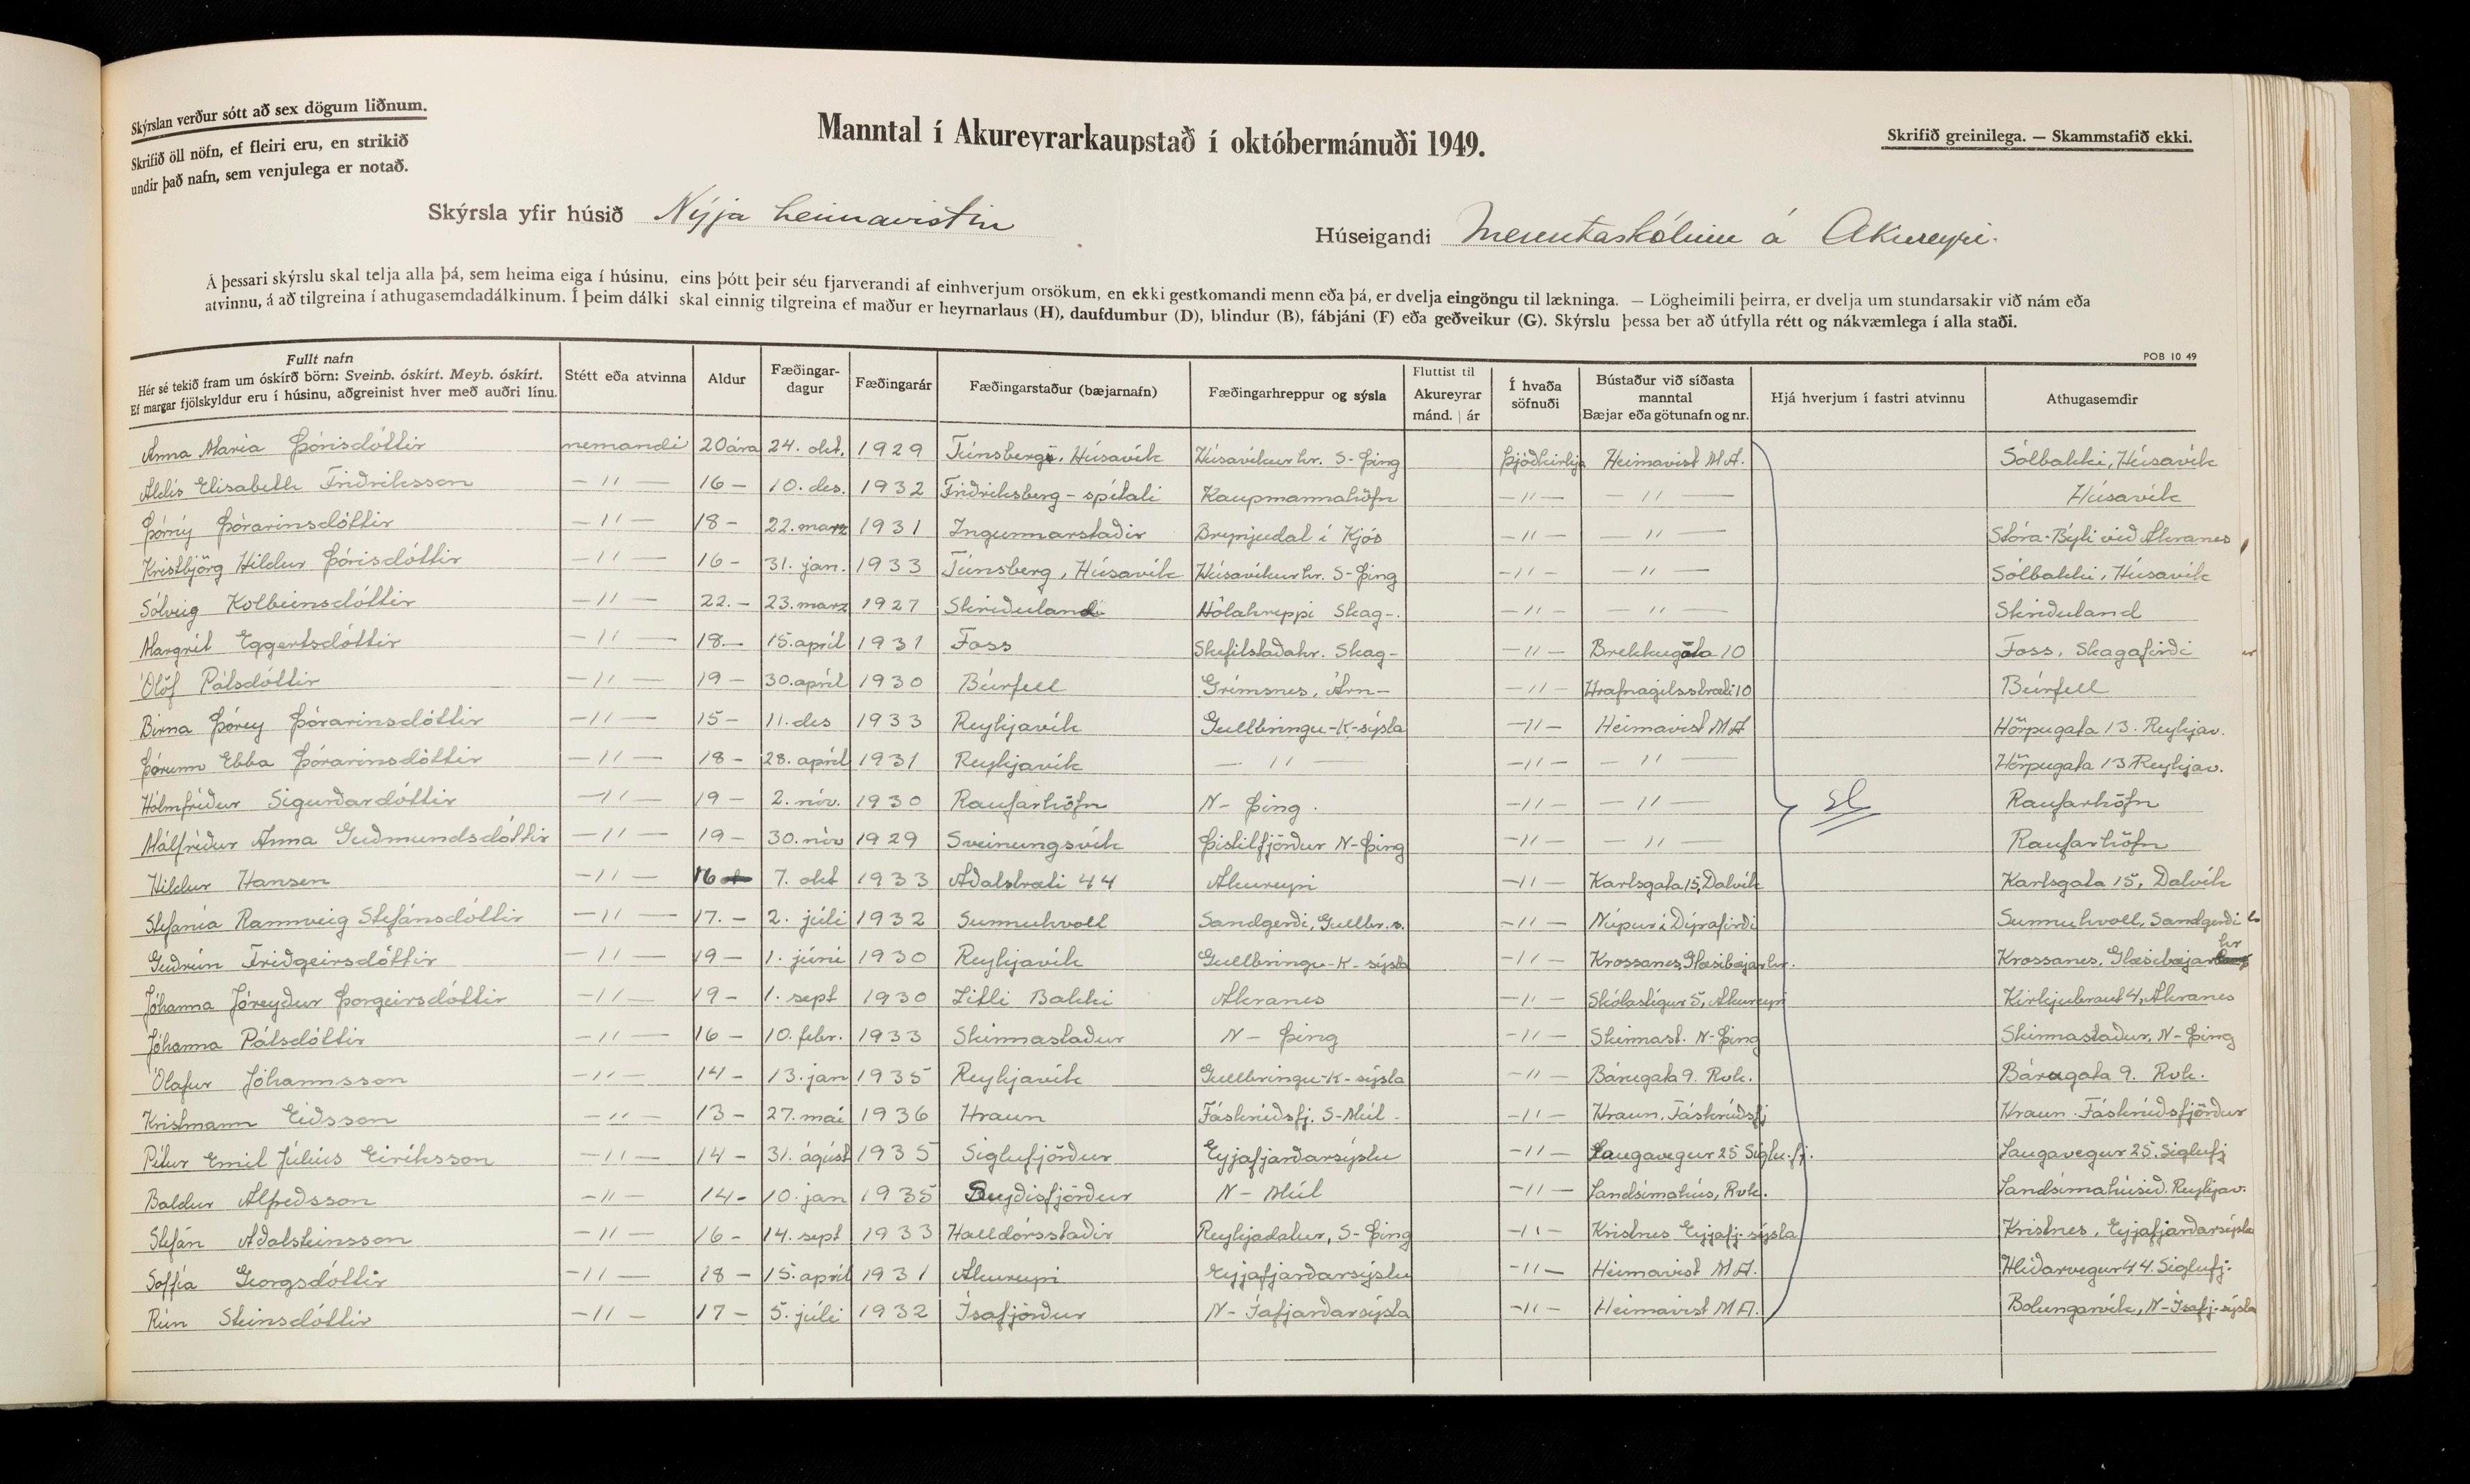 Skýrslan verður sótt að sex dögum liðnum.
Skrifið öll nöfn, ef fleiri eru, en strikið
undir það nafn, sem venjulega er notað.
Manntal í Akureyrarkaupstað í októbermánuði 1949.
Skrifið greinilega. — Skammstafið ekki.
Skýrsla yfir húsið Nýja heimavistin
Húseigandi Menntaskólinn á Akureyri.
Á þessari skýrslu skal telja alla þá, sem heima eiga í húsinu, eins þótt þeir séu fjarverandi af einhverjum orsökum, en ekki gestkomandi menn eða þá, er dvelja eingöngu til lækninga. — Lögheimili þeirra, er dvelja um stundarsakir við nám eða
atvinnu, á að tilgreina í athugasemdadálkinum. Í þeim dálki skal einnig tilgreina ef maður er heyrnarlaus (H), daufdumbur (D), blindur (B), fábjáni (F) eða geðveikur (G). Skýrslu þessa ber að útfylla rétt og nákvæmlega í alla staði.
POB 10 49
Fullt nafn
Hér sé tekið fram um óskírð börn: Sveinb. óskírt. Meyb. óskírt.
Ef margar fjölskyldur eru í húsinu, aðgreinist hver með auðri línu.
Stétt eða atvinna
Aldur
Fæðingar-
dagur
Fæðingarár
Fæðingarstaður (bæjarnafn)
Fæðingarhreppur og sýsla
Fluttist til
Akureyrar
mánd. | ár
Í hvaða
söfnuði
Bústaður við síðasta
manntal
Bæjar eða götunafn og nr.
Hjá hverjum í fastri atvinnu
Athugasemdir
Anna María Þórisdóttir nemandi 20 ára 24. okt. 1929 Túnsberg, Húsavík Húsavíkurhr. S-Þing Þjóðkirkja Heimavist M.A. Sólbakki, Húsavík
Aldís Elisabeth Friðriksson -11- 16 - 10. des. 1932 Friðriksberg - spítali Kaupmannahöfn -11- -11- Húsavík
Þórný Þórarinsdóttir -11- 18 - 22. marz 1931 Ingunnarstaðir Brynjudal í Kjós -11- -11- Stóra-Býli við Akranes
Kristbjörg Hildur Þórisdóttir -11- 16 - 31. jan. 1933 Túnsberg, Húsavík Húsavíkurhr. S-Þing -11- -11- Sólbakki, Húsavík
Sólveig Kolbeinsdóttir -11- 22. - 23. marz 1927 Skriðuland Hólahreppi Skag-. -11- -11- Skriðuland
Margrét Eggertsdóttir -11- 18. - 15. apríl 1931 Foss Skefilstaðahr. Skag- -11- Brekkugata 10 Foss, Skagafirði
Ólöf Pálsdóttir -11- 19 - 30. apríl 1930 Búrfell Grímsnes, Árn- -11- Hrafnagilsstræti 10 Búrfell
Birna Þórey Þórarinsdóttir -11- 15 - 11. des 1933 Reykjavík Gullbringu-K-sýsla -11- Heimavist M.A Hörpugata 13. Reykjav.
Þórunn Ebba Þórarinsdóttir -11- 18 - 28. apríl 1931 Reykjavík -11- -11- -11- Hörpugata 13 Reykjav.
Hólmfríður Sigurðardóttir -11- 19 - 2. nóv. 1930 Raufarhöfn N-Þing. -11- -11- Raufarhöfn
Málfríður Anna Guðmundsdóttir -11- 19 - 30. nóv 1929 Sveinungsvík Þistilfjörður N-Þing -11- -11- Raufarhöfn
Hildur Hansen -11- 16 7. okt 1933 Aðalstræti 44 Akureyri -11- Karlsgata 15, Dalvík Karlsgata 15, Dalvík
Stefanía Rannveig Stefánsdóttir -11- 17. - 2. júlí 1932 Sunnuhvoll Sandgerði, Gullbr.s. -11- Núpur í Dýrafirði Sunnuhvoll, Sandgerði
Guðrún Friðgeirsdóttir -11- 19 - 1. júní 1930 Reykjavík Gullbringu-K-sýsla -11- Krossanes, Glæsibæjarhr. Krossanes, Glæsibæjarhr
Jóhanna Jóreyður Þorgeirsdóttir -11- 19 - 1. sept 1930 Litli Bakki Akranes -11- Skólastígur 5, Akureyri Kirkjubraut 4, Akranes
Jóhanna Pálsdóttir -11- 16 - 10. febr. 1933 Skinnastaður N-Þing -11- Skinnast. N-Þing Skinnastaður, N-Þing
Ólafur Jóhannsson -11- 14 - 13. jan 1935 Reykjavík Gullbringu-K-sýsla -11- Bárugata 9. Rvk. Bárugata 9. Rvk.
Kristmann Eiðsson -11- 13 - 27. maí 1936 Hraun Fáskrúðsfj. S-Múl- -11- Hraun. Fáskrúðsfj Hraun. Fáskrúðsfjörður
Pétur Emil Júlíus Eiríksson -11- 14 - 31. ágúst 1935 Siglufjörður Eyjafjarðarsýslu -11- Laugavegur 25 Siglu.fj. Laugavegur 25, Siglufj
Baldur Alfreðsson -11- 14 - 10. jan 1935 Seyðisfjörður N-Múl -11- Landsímahús, Rvk. Landsímahúsið. Reykjav.
Stefán Aðalsteinsson -11- 16 - 14. sept 1933 Halldórsstaðir Reykjadalur, S-Þing -11- Kristnes Eyjafj-sýsla Kristnes, Eyjafjarðarsýsla
Soffía Georgsdóttir -11- 18 - 15. apríl 1931 Akureyri Eyjafjarðarsýslu -11- Heimavist M.A. Hlíðarvegur 44. Siglufj.
Rún Steinsdóttir -11- 17 - 5. júlí 1932 Ísafjörður N-Ísafjarðarsýsla -11- Heimavist M.A. Bolungarvík, N-Ísafj-sýsla